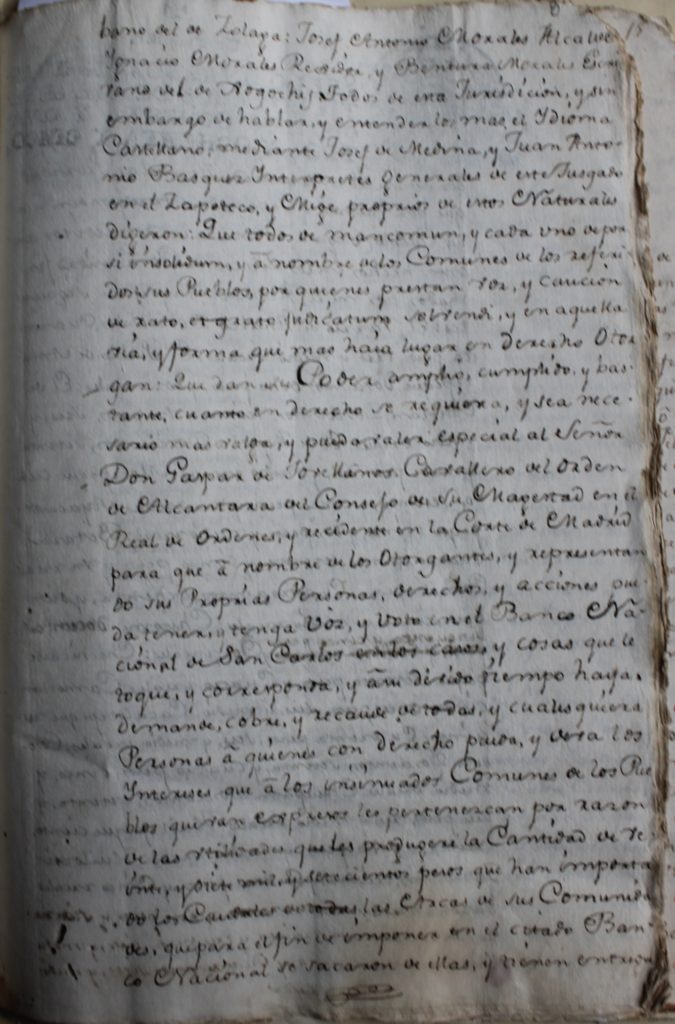 bano del de Zolaga: Josef Antonio Morales Alcalde
Ygnacio Morales Regidor, y Bentura Morales Escri
bano del de Yogochi, todos de esta Jurisdicion, y sin
embargo de hablar, y entender los mas, el Ydioma
Castellano, mediante Josef de Medina, y Juan Anto-
nio Basquez Ynterpretes generales de este Jusgado
en el Zapoteco, y Mige, proprios de estos Naturales
digeron: Que todos de mancomun, y cada uno de por
si insolidum, y â nombre de los Comunes de los referi
dos sus Pueblos, por quienes prestan voz, y caucion
de rato, et grato judicatum solvendi, y en aquella
via, y forma que mas haia lugar en derecho Otor
gan: Que dan su Poder amplio, cumplido, y bas-
tante, cuanto en derecho se requiera, y sea nece-
sario mas valga, y pueda valer especial al Señor
Don Gaspar de Jovellanos Cavallero del Orden
de Alcantara del Consejo de Su Magestad en el
Real de Ordenes, y recidente en la Corte de Madrid
para que â nombre de los Otorgantes, y representan
do sus Proprias Personas, derechos, y acciones pue-
da tener, y tenga Voz, y Voto en el Banco Na-
cional de San Carlos en los casos, y cosas que le
toque, y corresponda, y â su devido tiempo haya,
demande, cobre, y recaude de todas, y cualesquiera
Personas â quienes con derecho pueda, y deva los
Ynterises que â los insinuados Comunes de los Pue
blos que van expresos les pertenezcan por razon
de las utilidades que les produgere la Cantidad de ve
inte, y siete mil, y setecientos pesos que han importa
do los Caudales de todas las Arcas de sus Comunida
des, que para el fin de imponer en el citado Ban-
co Nacional se sacaron de ellas, y tienen